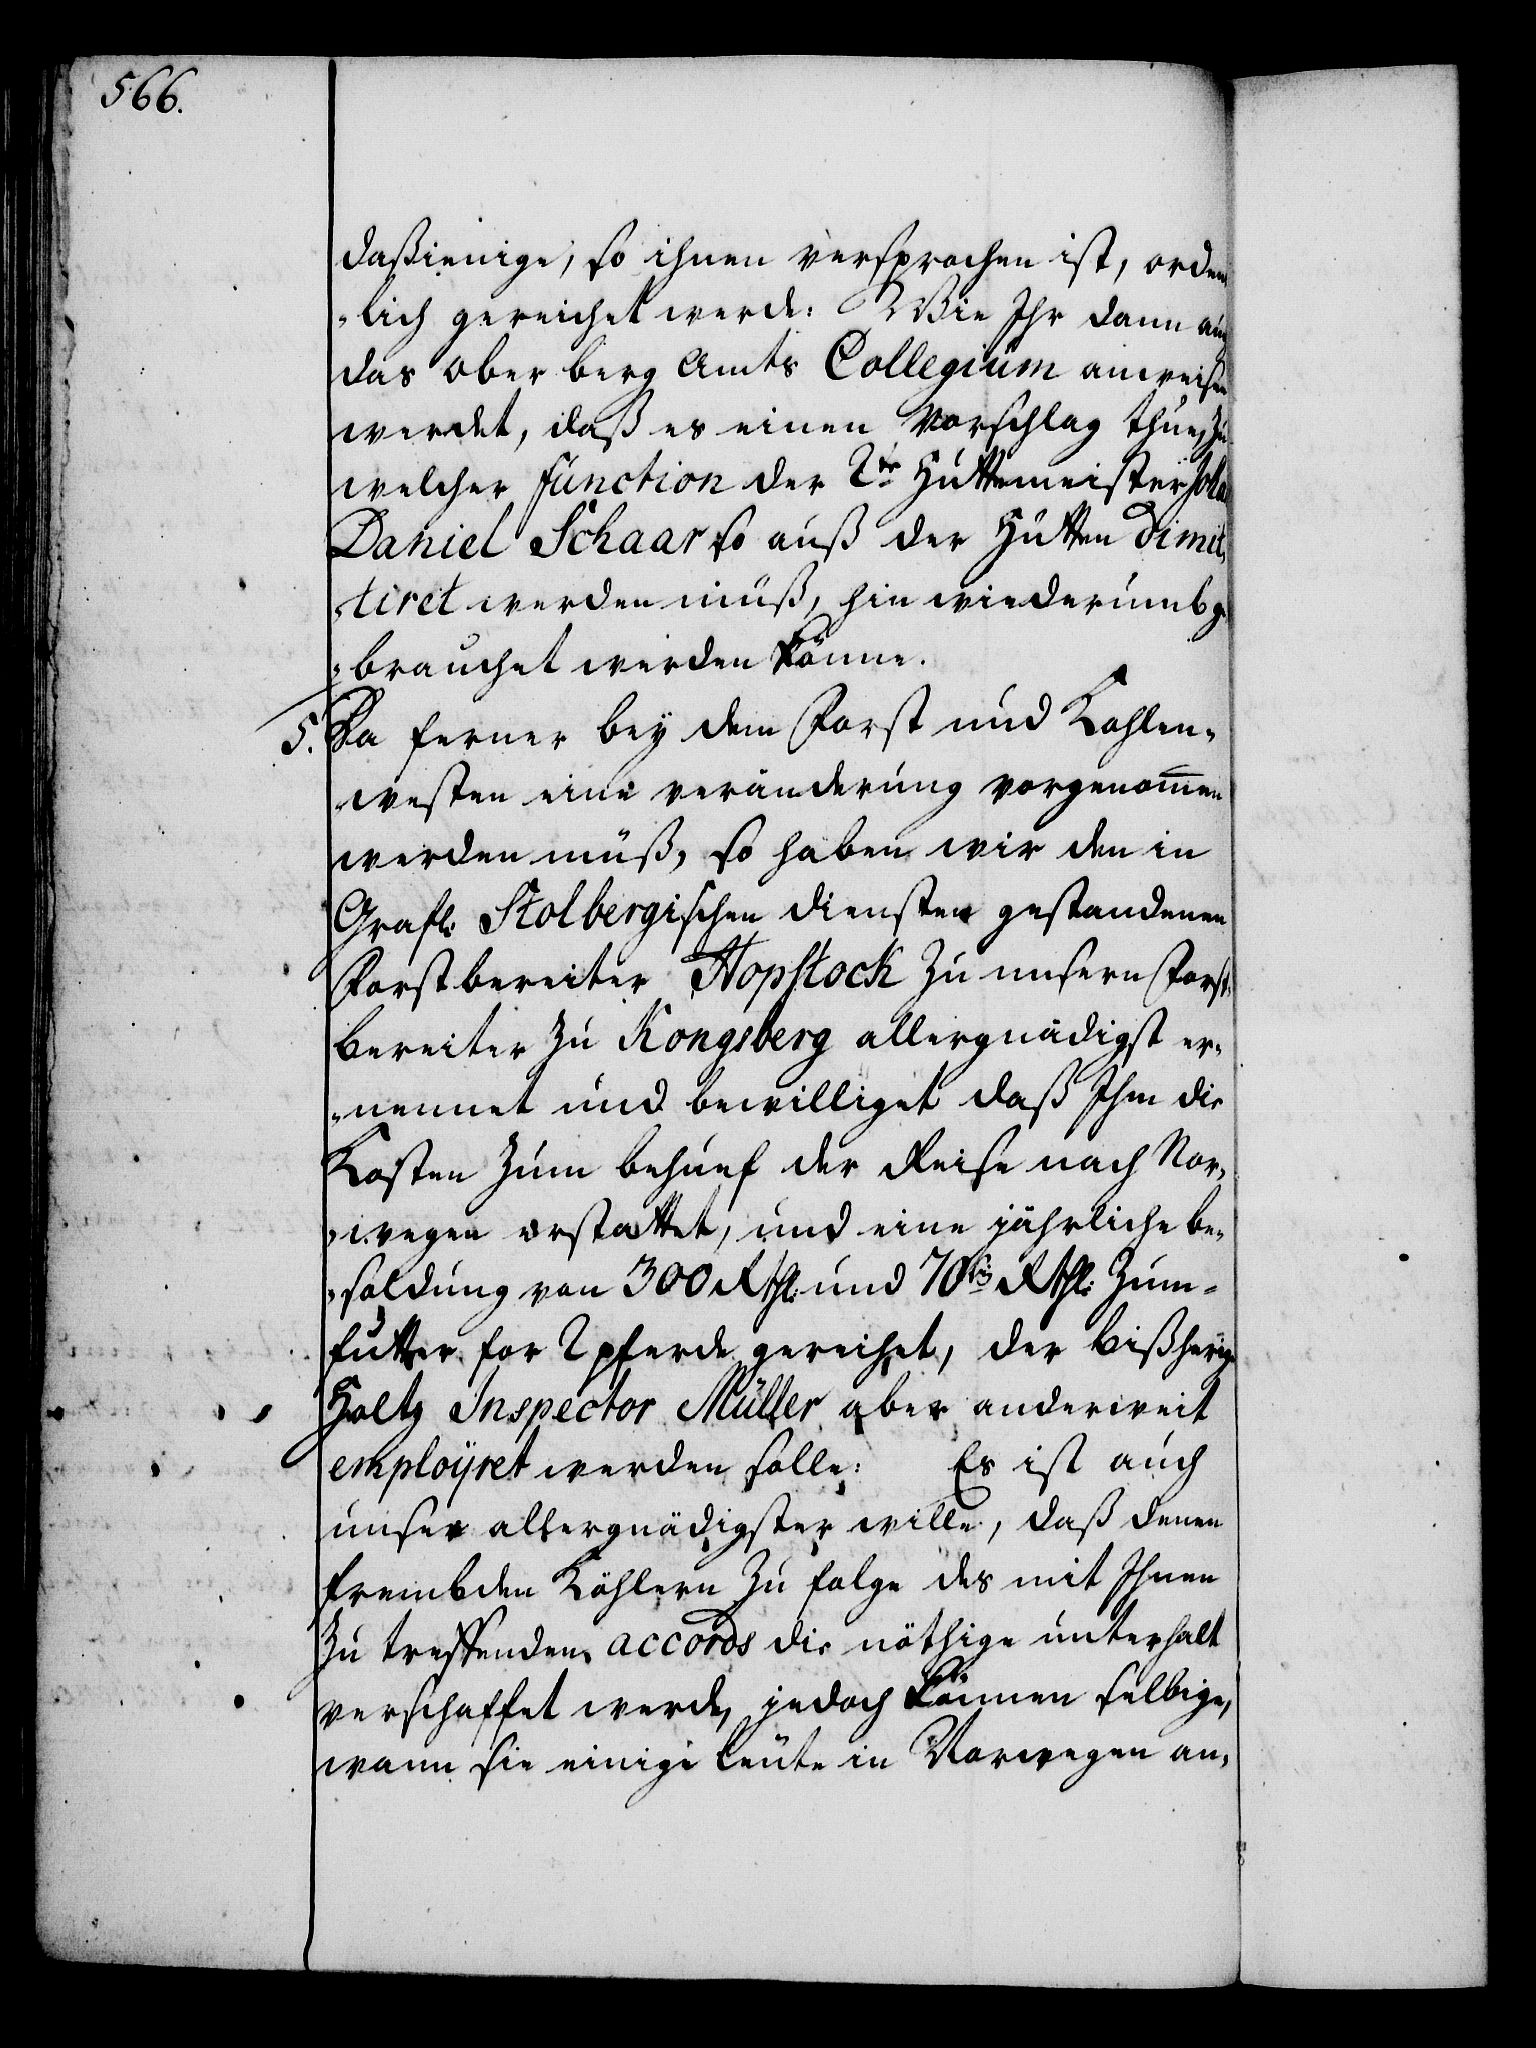 566.
daßienige, so ihnen versprochen ist, ordent
„lich gereichet werde: Wie Ihr dann auch
das Ober berg Amts Collegium anweisen
werdet, daß es einen Vorschlag thue, zu
welcher function der 2te Hüttemeister Johan
Daniel Schaar so auß der Hütten dimit„
„tiret werden müß, hin wiederumb ge„
„brauchet werden könne.
5. Da ferner bey dem Forst und Kohlen„
„westen eine veränderung vorgenom̅en
werden müß, so haben wir den in
Grafl: Stolbergischen diensten gestandenen
Forstbereiter Hopstock zu unsern Forst„
bereiter zu Kongsberg allergnädigst er„
„nennet und bewilliget daß Ihm die
Kosten zum behuef der Reise nach Nor„
„wegen erstattet, und eine jährliche be„
„soldung von 300 Rthl: und 70 Rthl: zum„
futter for 2 pferde gereichet, der bißherige
Holtz Inspector Müller aber anderweit
employret werden solle: Es ist auch
unser allergnädigster wille, daß denen
frembden Köhlern zu folge des mit Ihnen
zu treffenden accords die nöthige unterhalt
verschaffet werde, jedoch können selbige,
wann sie einige leute in Norwegen an„